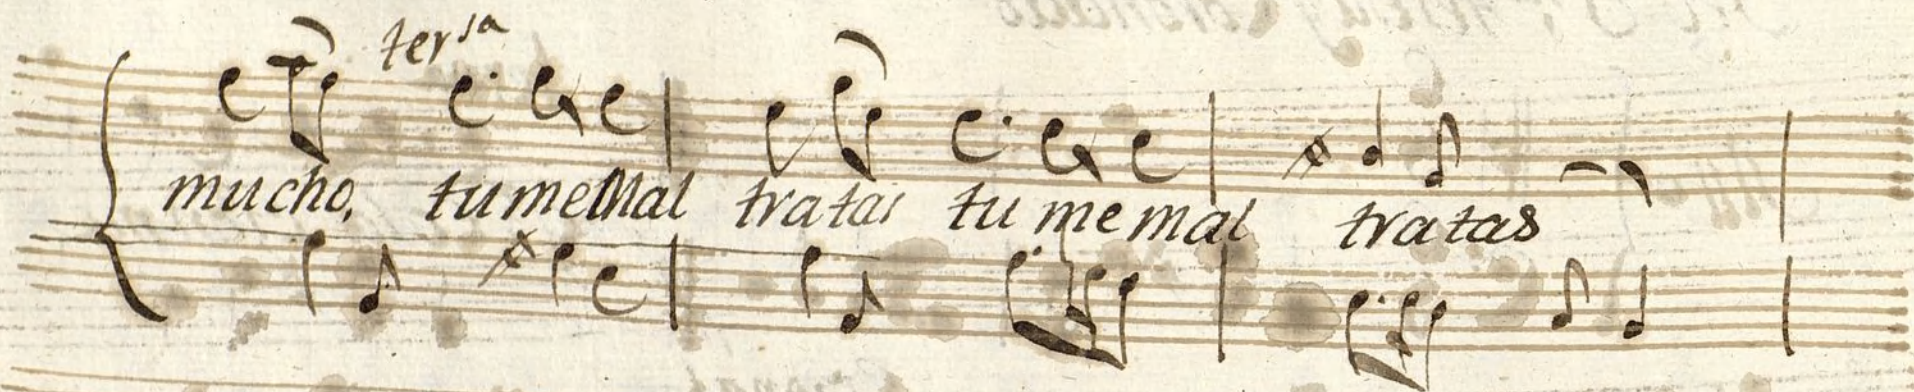 ter^sa
mucho, tu me Mal tratas tu me mal tratas